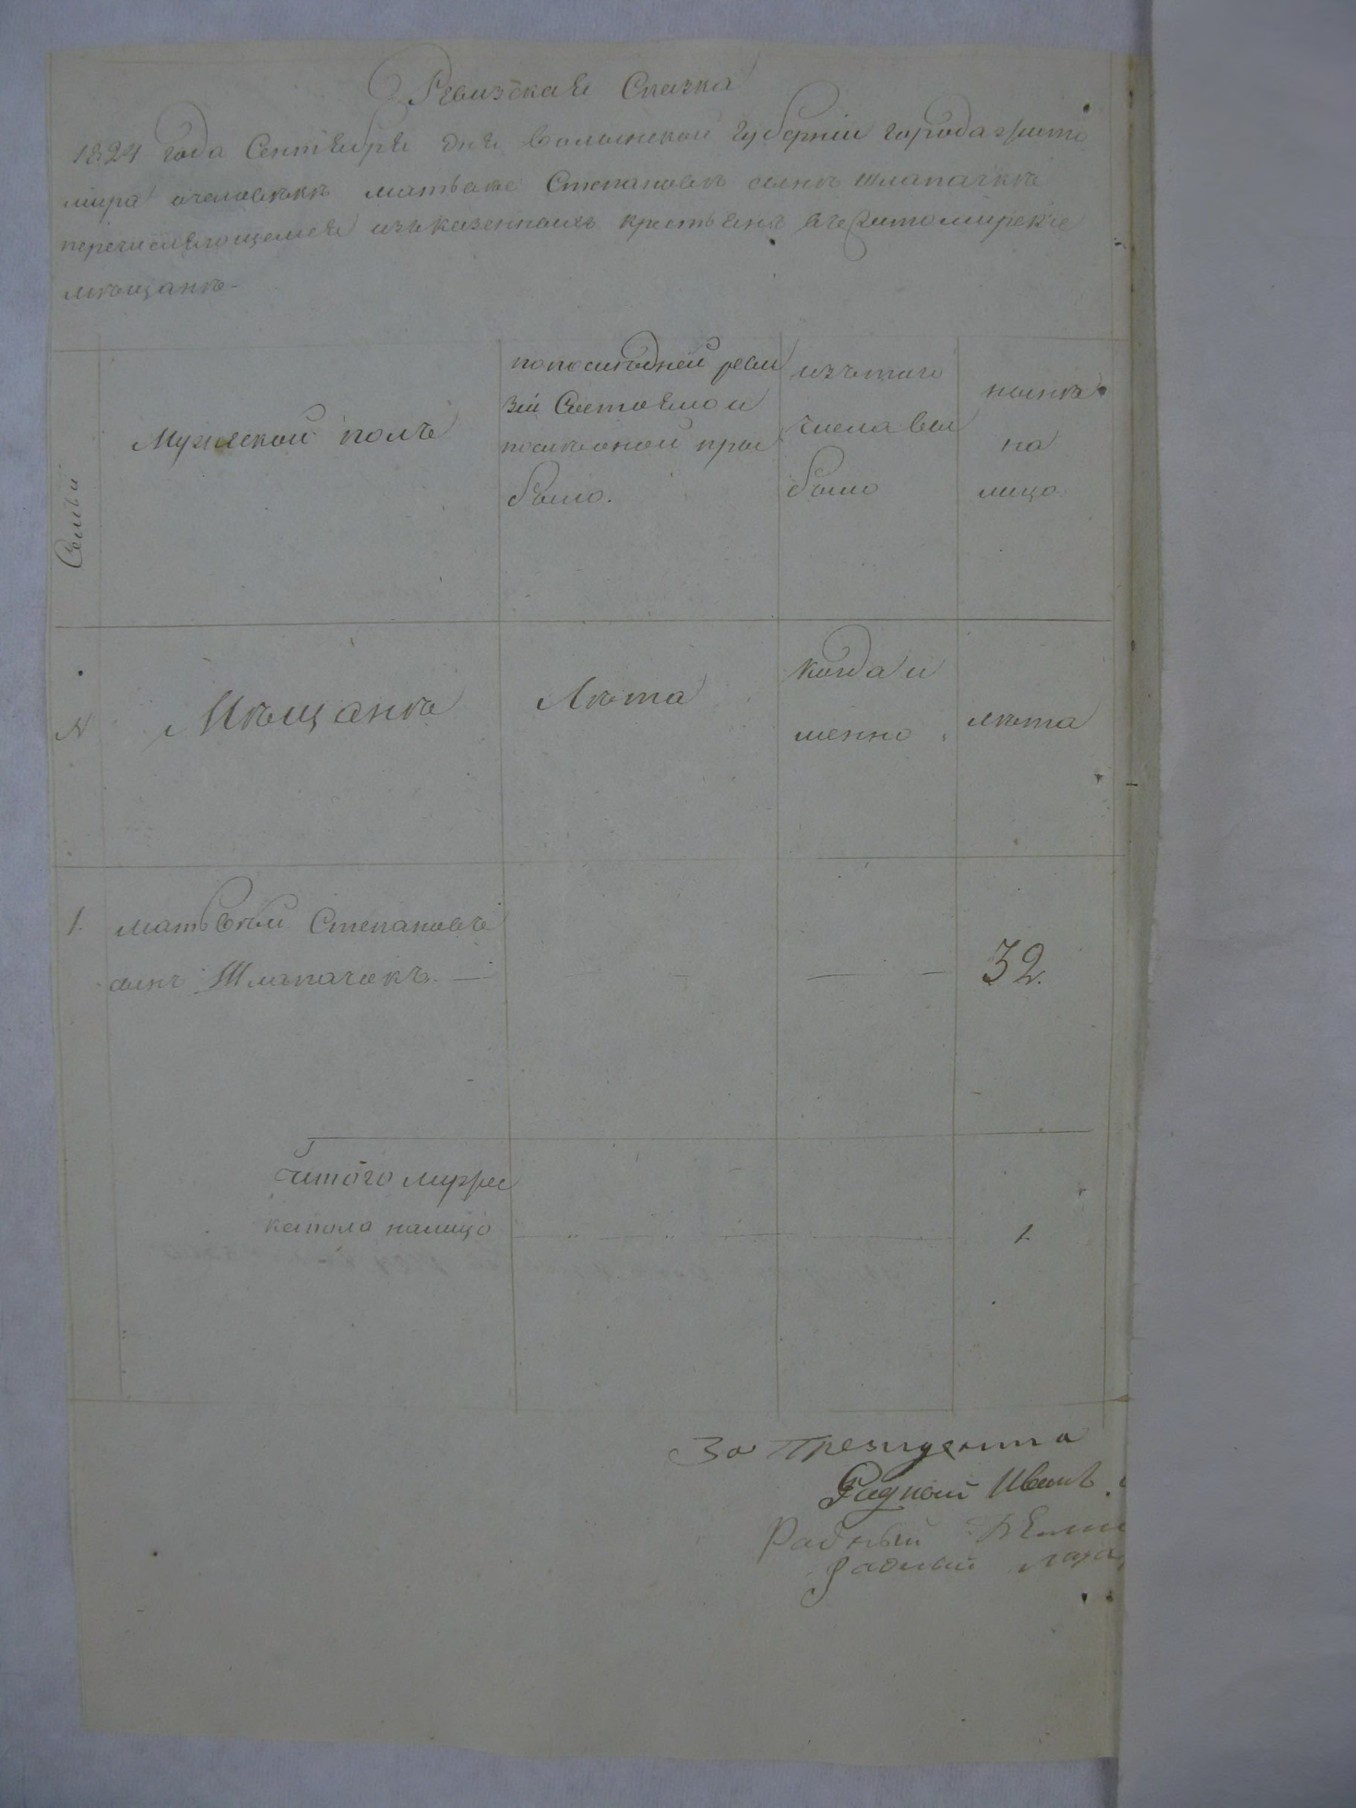 Ревизская Сказка
1824 года Сентября дня Волынской Губернии города Жито
мира очеловекѣ Матьвѣе Степановѣ сынѣ Шлапачкѣ
перечисляющемся изъ казенныхъ крестьянъ въ Житомирские
мѣщанѣ
Семьи
Мужеской полъ
по последней реви
зии Состояло и
послѣ оной при
было.
изъ того
числа вы
было
нынѣ
на
лицо.
№
Мѣщанѣ
Лѣта
когда и
менно
лѣта
1. Матьвѣй Степановъ
сынъ Шлапачекъ. — 32.
итого мужес
ка пола налицо 1.
За Президента
Радной Иванъ
Радный
Радный Лаза